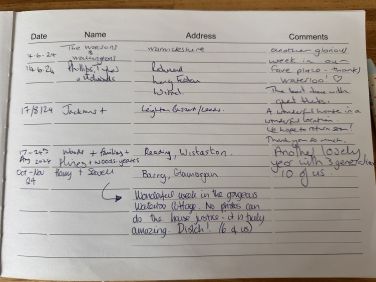 Date Name Address Comments
The Watsons Warwickshire Another glorious
4-6-24 & week in our
fave place - thanks
14.6.24 Phillips, Waterloo! ♡
The best time with
great
17/8/24 Jacksons + Leighton Buzzard/Leeds. A wonderful house in a
wonderful location
We hope to return soon!
Thank you so much.
Woods + + Reading, Wistaston. Another lovely
Aug 2024 + Woods-years year with 3 generations
Oct-Nov Harry + Barry, Glamorgan 10 of us.
24
Wonderful week in the gorgeous
Waterloo Cottage. No photos can
do the house justice - it is truly
amazing. Diolch! (6 of us)